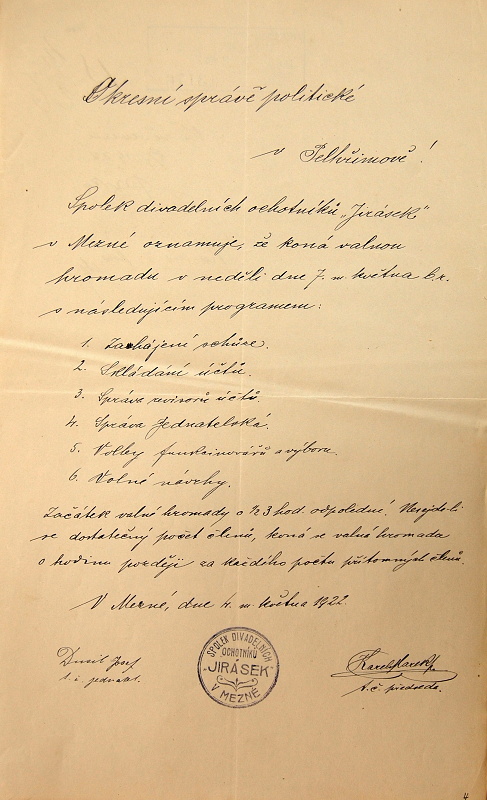 Okresní správě politické
v Pelhřimově!
Spolek divadelních ochotníků „Jirásek"
v Mezné oznamuje, že koná valnou
hromadu v neděli dne 7. m. května b.r.
s následujícím programem:
1. Zahájení schůze.
2. Skládání účtů.
3. Správa revisorů účtů.
4. Správa jednatelská.
5. Volby funkcionářů a výboru.
6. Volné návrhy.
Začátek valné hromady o ½3 hod. odpoledne. Nesejde-li
se dostatečný počet členů, koná se valná hromada
o hodinu později za každého počtu přítomných členů.
V Mezné, dne 4. m. května 1922.
Josef
t. č. jednatel.
SPOLEK DIVADELNÍCH
OCHOTNÍKŮ
"JIRÁSEK"
V MEZNÉ
Karel
t. č. předseda.
4